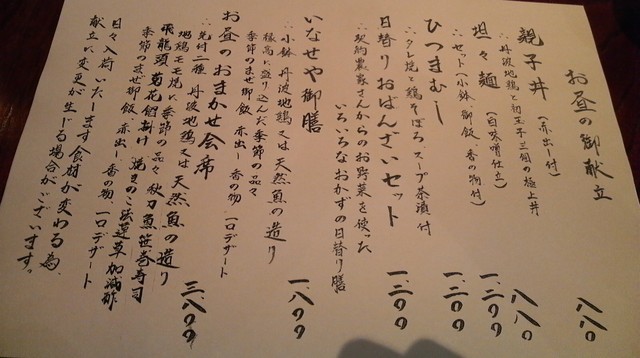 お昼の御献立
親子丼（赤出し付） 八八〇
∴丹波地鶏と初玉子三個の極上丼 八八〇
坦々麺（白味噌仕立） 一、二〇〇
∴セット（小鉢、御飯、香の物付）
ひつまむし 一、三〇〇
∴タレ焼と鶏そぼろ、スープ茶漬付
日替りおばんざいセット 一、三〇〇
∴契約農家さんからのお野菜を使った
いろいろなおかずの日替り膳
いなせや御膳 一、八〇〇
∴小鉢 丹波地鶏又は天然魚の造り
籠に盛り込んだ季節の品々
季節のまぜ御飯 赤出し 香の物 一口デザート
お昼のおまかせ会席 三、八〇〇
∴先付二種 丹波地鶏又は天然魚の造り
地鶏モモ焼と季節の品々 秋刀魚笹巻寿司
飛龍頭菊花餡掛け 焼きのこ法蓮草加減酢
季節のまぜ御飯 赤出し 香の物、一口デザート
日々入荷いたします食材が変わる為、
献立に変更が生じる場合がございます。